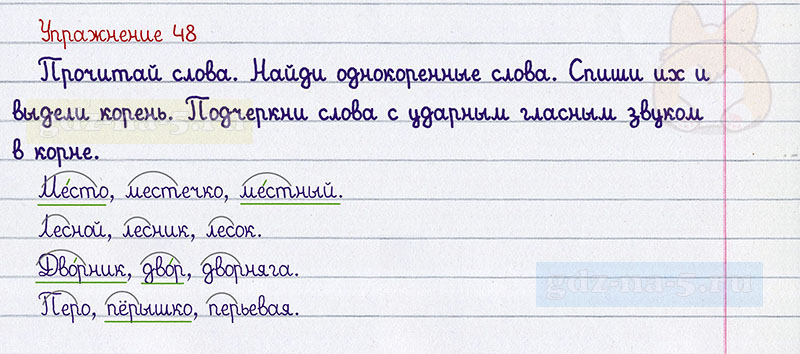 Упражнение 48
Прочитай слова. Найди однокоренные слова. Спиши их и
выдели корень. Подчеркни слова с ударным гласным звуком
в корне.
Ме́сто, местечко, ме́стный.
Лесной, лесник, лесок.
Дво́рник, дво́р, дворняга.
Перо, пёрышко, перьевая.
gdz-na-5.ru
gdz-na-5.ru